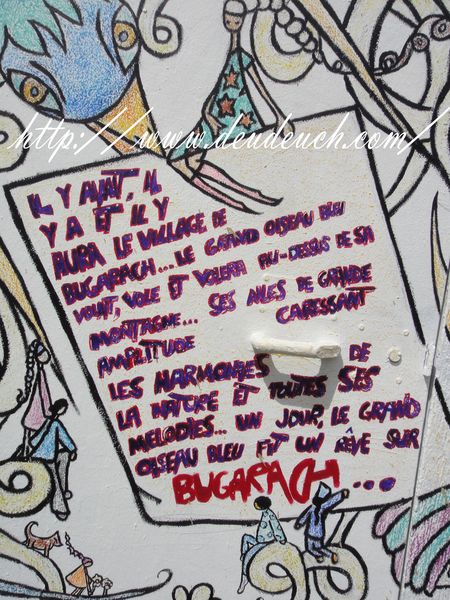 http://www.deudeuch.com/
IL Y AVAIT, IL
Y A ET IL Y
AURA LE VILLAGE DE
BUGARACH... LE GRAND OISEAU BLEU
VOLAIT, VOLE ET VOLERA AU-DESSUS DE SA
MONTAGNE... SES AILES DE GRANDE
AMPLITUDE CARESSANT
LES HARMONIES DE
LA NATURE ET TOUTES SES
MELODIES... UN JOUR, LE GRAND
OISEAU BLEU FIT UN RÊVE SUR
BUGARACH...
http://www.deudeuch.com/